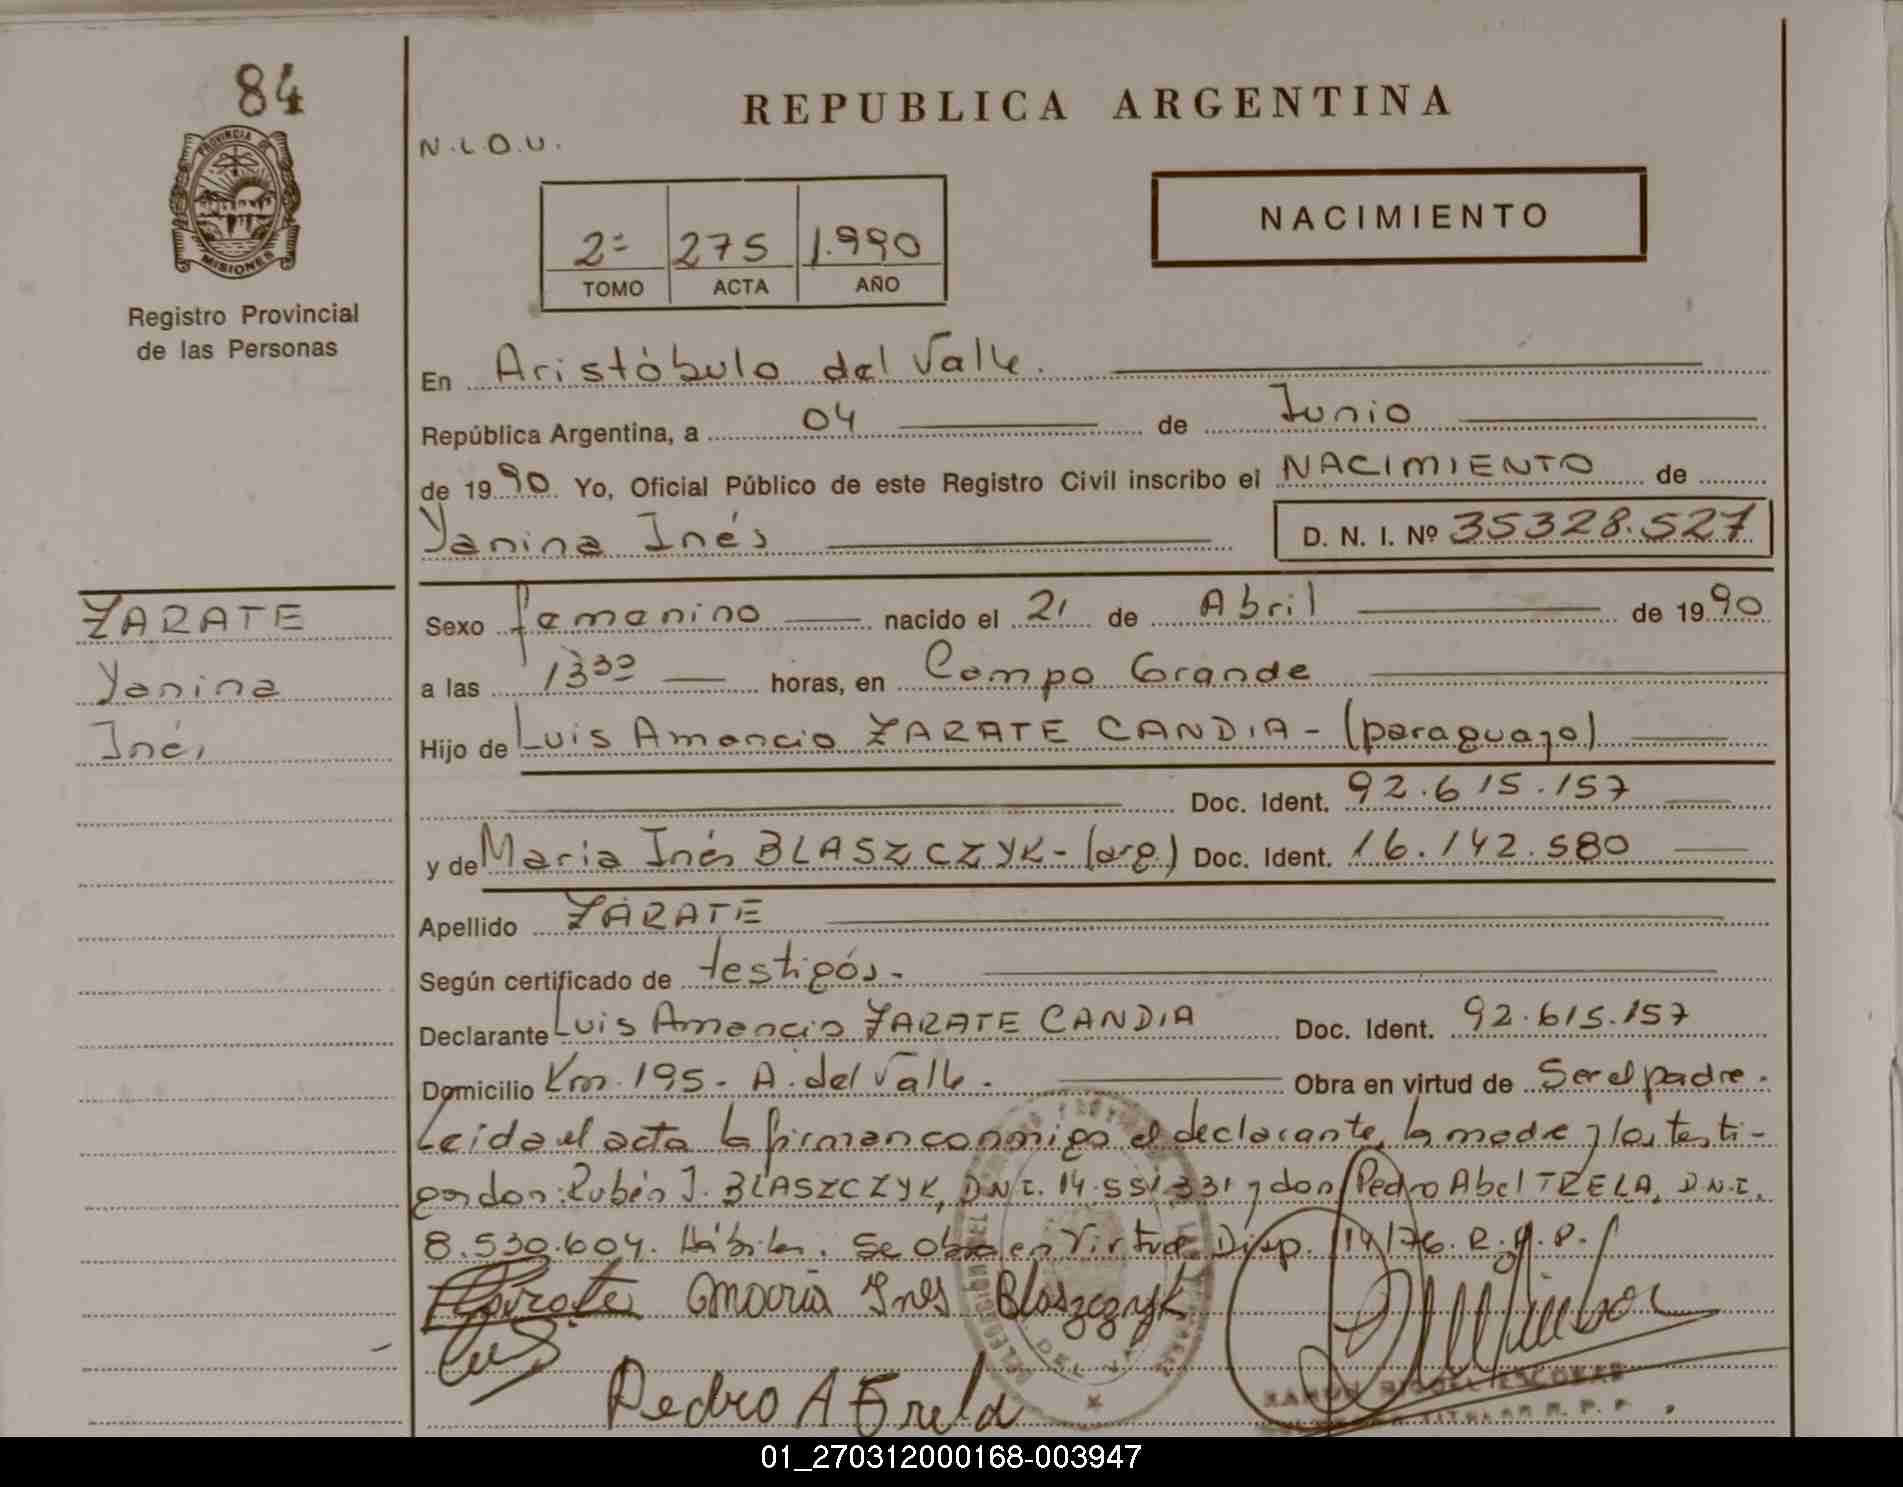 84
PROVINCIA DE
MISIONES
Registro Provincial
de las Personas
REPUBLICA ARGENTINA
N.L.O.U.
NACIMIENTO
2ª 275 1.990
TOMO ACTA AÑO
En Aristóbulo del Valle.
República Argentina, a 04 de Junio
de 1990 Yo, Oficial Público de este Registro Civil inscribo el NACIMIENTO de
Yanina Inés D. N. I. Nº 35328.527
ZARATE
Yanina
Inés
Sexo femenino nacido el 21 de Abril de 1990
a las 13³⁰ horas, en Campo Grande
Hijo de Luis Amancio ZARATE CANDIA - (paraguayo)
Doc. Ident. 92.615.157
y de Maria Inés BLASZCZYK - (arg.) Doc. Ident. 16.142.580
Apellido ZARATE
Según certificado de testigós.
Declarante Luis Amancio ZARATE CANDIA Doc. Ident. 92.615.157
Domicilio Km. 195 - A. del Valle. Obra en virtud de Ser el padre.
Leida el acta la firman conmigo el declarante, la madre y los testi-
gos don: Rubén J. BLASZCZYK, D.N.I. 14.551.331 y don Pedro Abel TRELA, D.N.I.
8.530.604. Hábiles. Se obra en Virtud Disp. 14/76. R.P.P.
Zarate Maria Ines Blaszczyk
Luis
Pedro A Trela
RAMON MIGUEL ESCOBAR
TITULAR R. P. P.
01_270312000168-003947